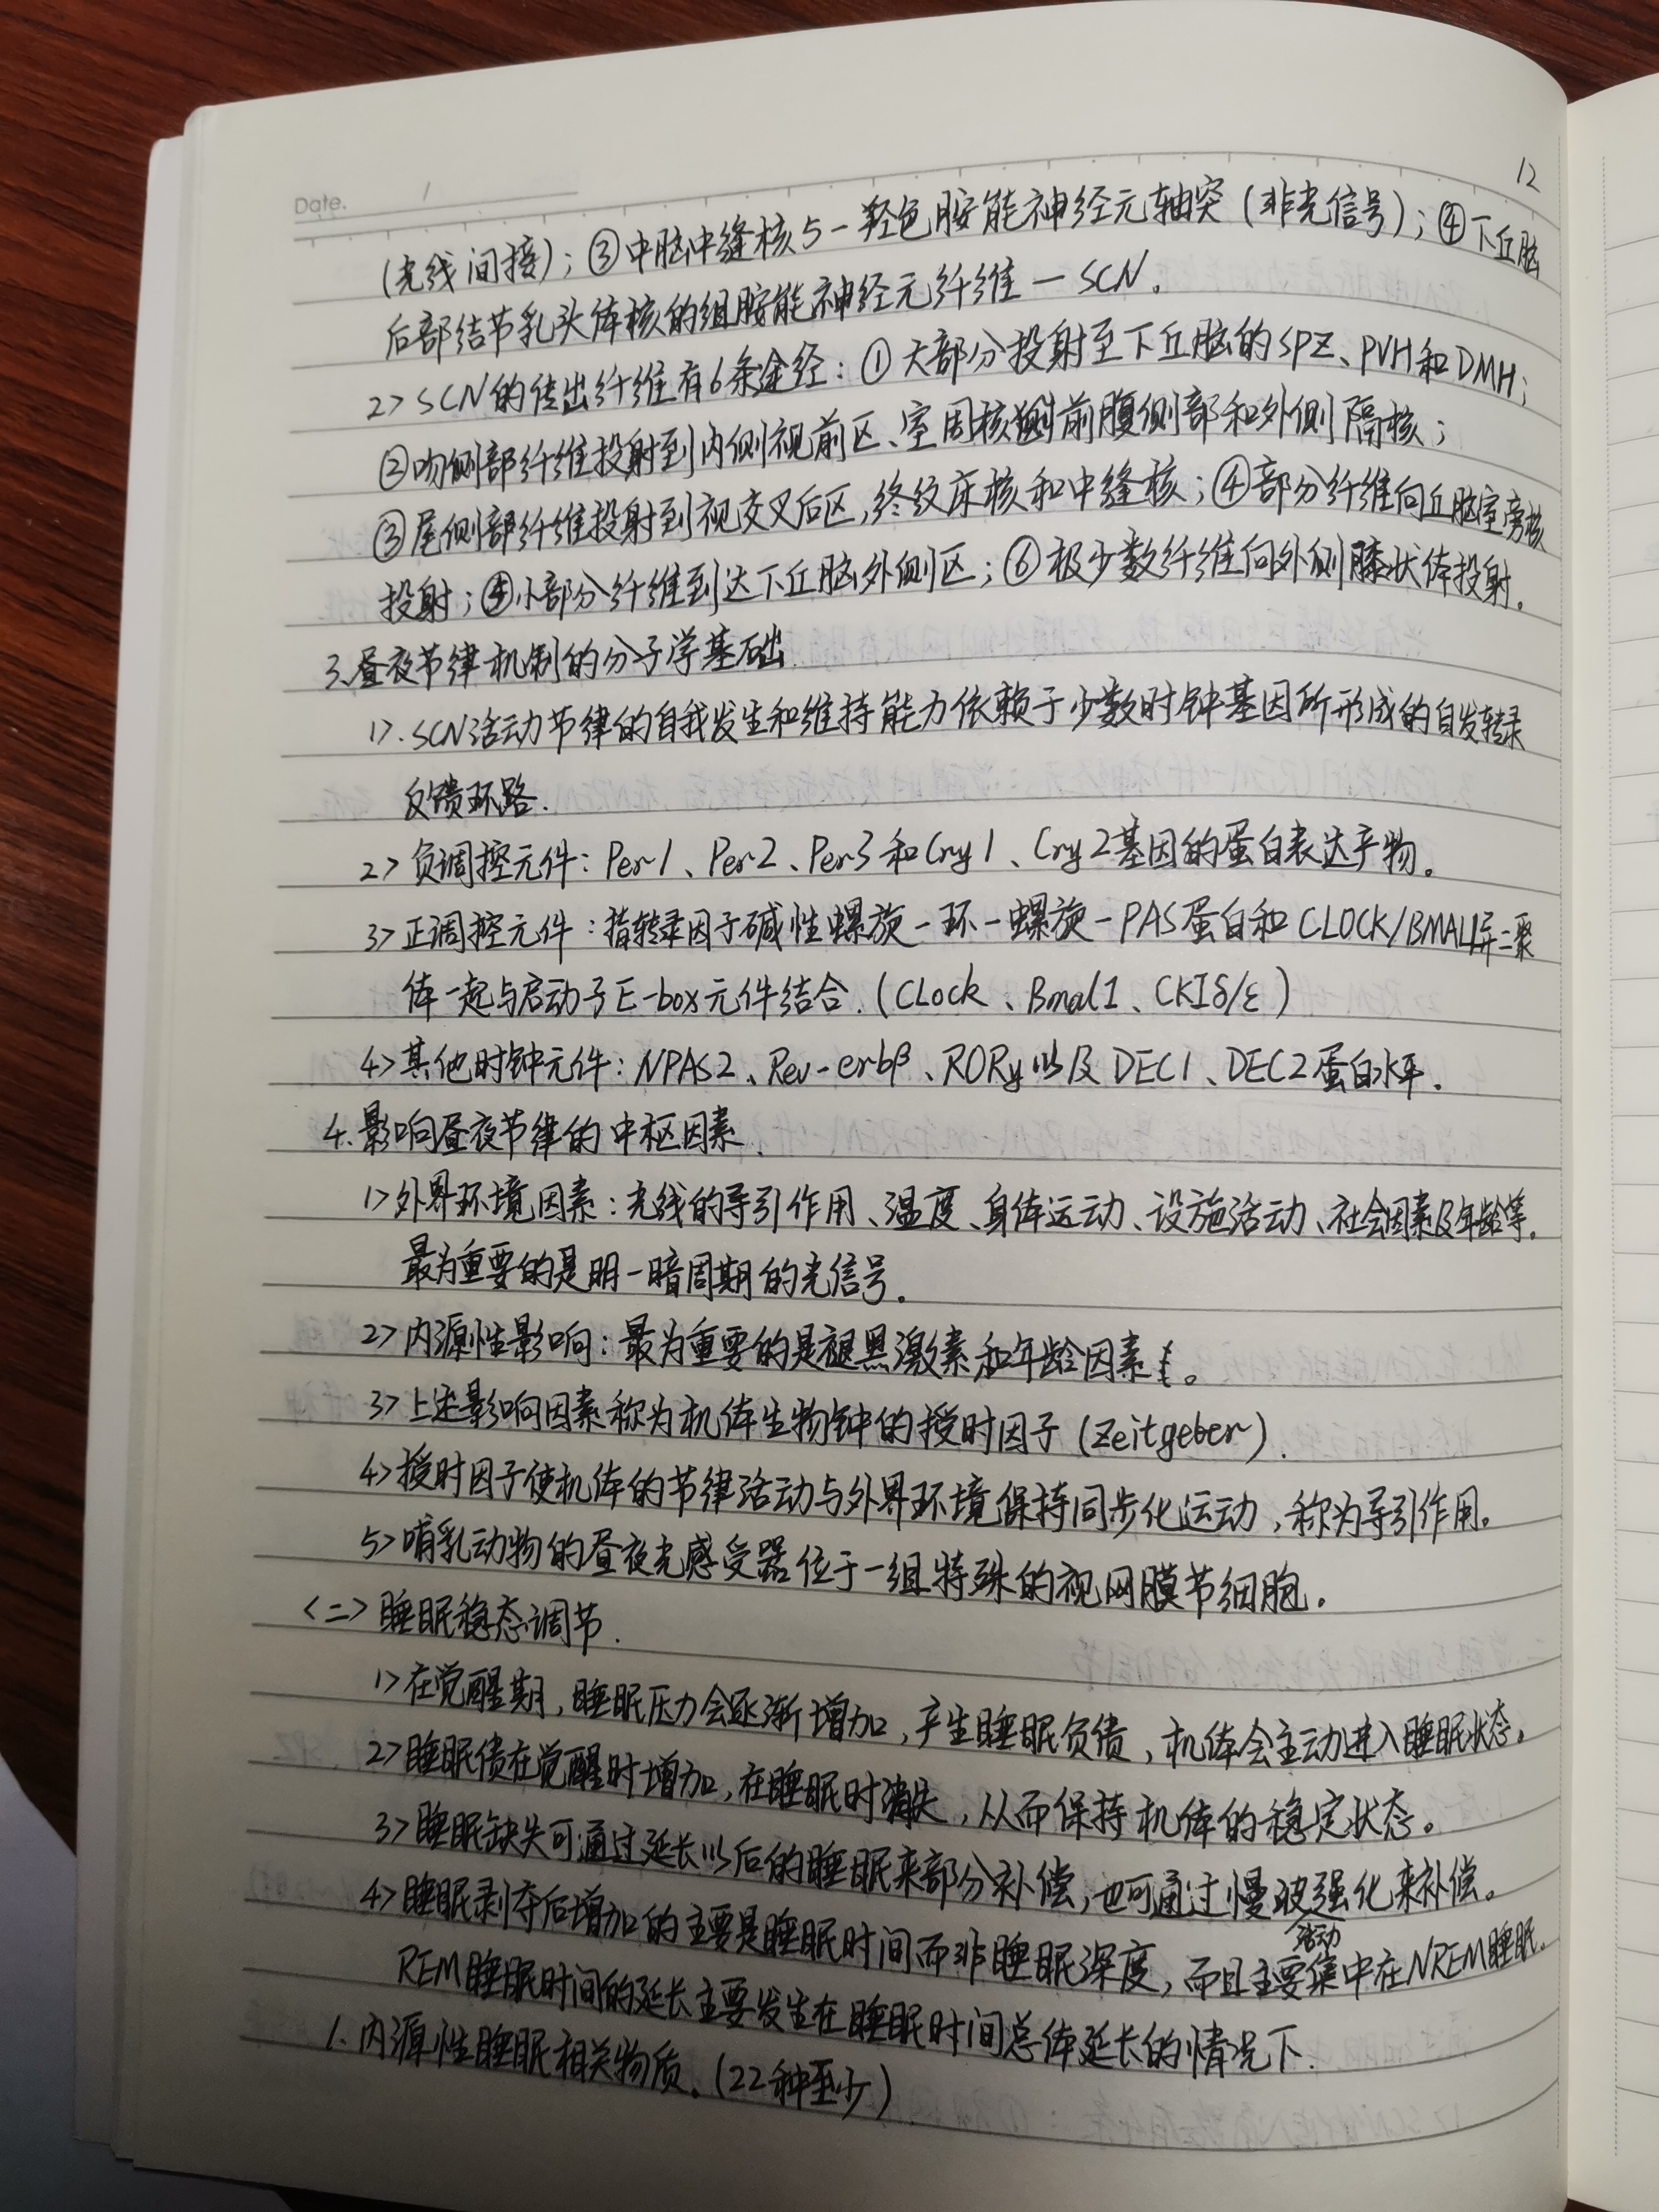 12
Date. /
(光线间接)；③中脑中缝核5-羟色胺能神经元轴突(非光信号)；④下丘脑
后部结节乳头体核的组胺能神经元纤维—SCN。
2> SCN的传出纤维有6条途经：①大部分投射至下丘脑的SPZ、PVH和DMH；
②吻侧部纤维投射到内侧视前区、室周核前腹侧部和外侧隔核；
③尾侧部纤维投射到视交叉后区，终纹床核和中缝核；④部分纤维向丘脑室旁核
投射；⑤小部分纤维到达下丘脑外侧区；⑥极少数纤维向外侧膝状体投射。
3.昼夜节律机制的分子学基础.
1>.SCN活动节律的自我发生和维持能力依赖于少数时钟基因所形成的自发转录
反馈环路.
2>负调控元件：Per1、Per2、Per3和Cry1、Cry2基因的蛋白表达产物。
3>正调控元件：指转录因子碱性螺旋-环-螺旋-PAS蛋白和CLOCK/BMAL1异二聚
体一起与启动子E-box元件结合.(CLock、Bmal1、CKIδ/ε)
4>其他时钟元件：NPAS2、Rev-erbβ、RORγ以及DEC1、DEC2蛋白水平.
4.影响昼夜节律的中枢因素.
1>外界环境因素：光线的导引作用、温度、身体运动、设施活动、社会因素及年龄等.
最为重要的是明-暗周期的光信号。
2>内源性影响：最为重要的是褪黑激素和年龄因素。
3>上述影响因素称为机体生物钟的授时因子(Zeitgeber).
4>授时因子使机体的节律活动与外界环境保持同步化运动，称为导引作用。
5>哺乳动物的昼夜光感受器位于一组特殊的视网膜节细胞。
<二>睡眠稳态调节.
1>在觉醒期，睡眠压力会逐渐增加，产生睡眠负债，机体会主动进入睡眠状态。
2>睡眠债在觉醒时增加，在睡眠时消失，从而保持机体的稳定状态。
3>睡眠缺失可通过延长以后的睡眠来部分补偿，也可通过慢波活动强化来补偿。
4>睡眠剥夺后增加的主要是睡眠时间而非睡眠深度，而且主要集中在NREM睡眠.
REM睡眠时间的延长主要发生在睡眠时间总体延长的情况下.
1.内源性睡眠相关物质.(22种至少)